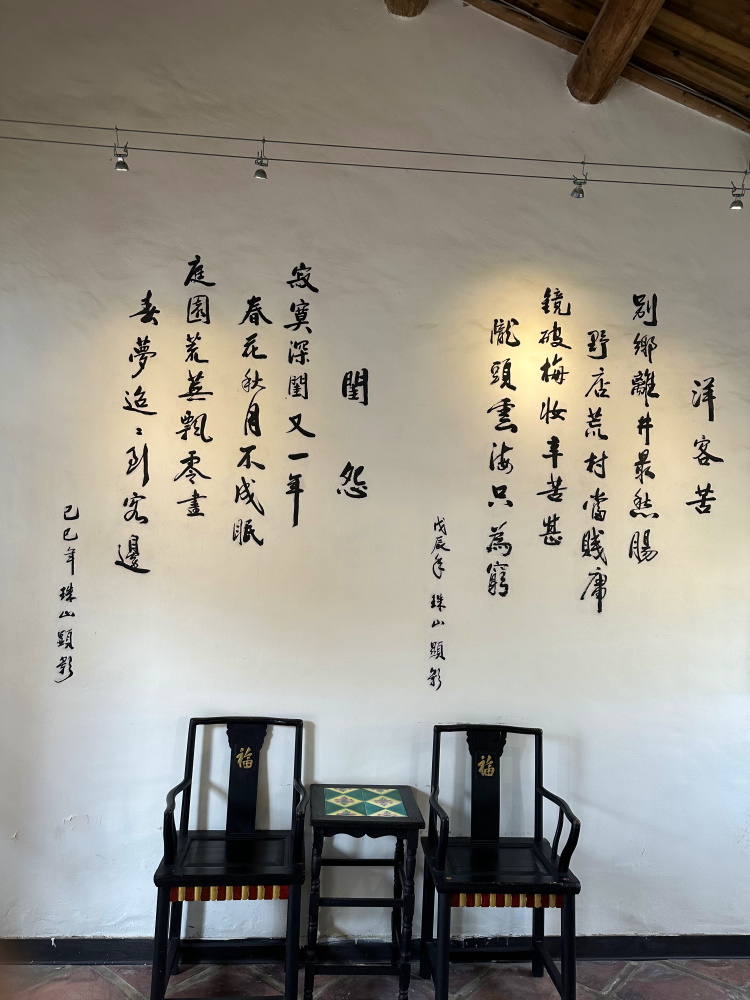 洋客苦
別鄉離井最愁腸
野店荒村當賤庸
鏡破梅妝辛苦甚
隴頭雲海只為窮
戊辰年 珠山 顯影
閨怨
寂寞深閨又一年
春花秋月不成眠
庭園荒蕪飄零盡
春夢迢々到客邊
己巳年 珠山 顯影
福
福